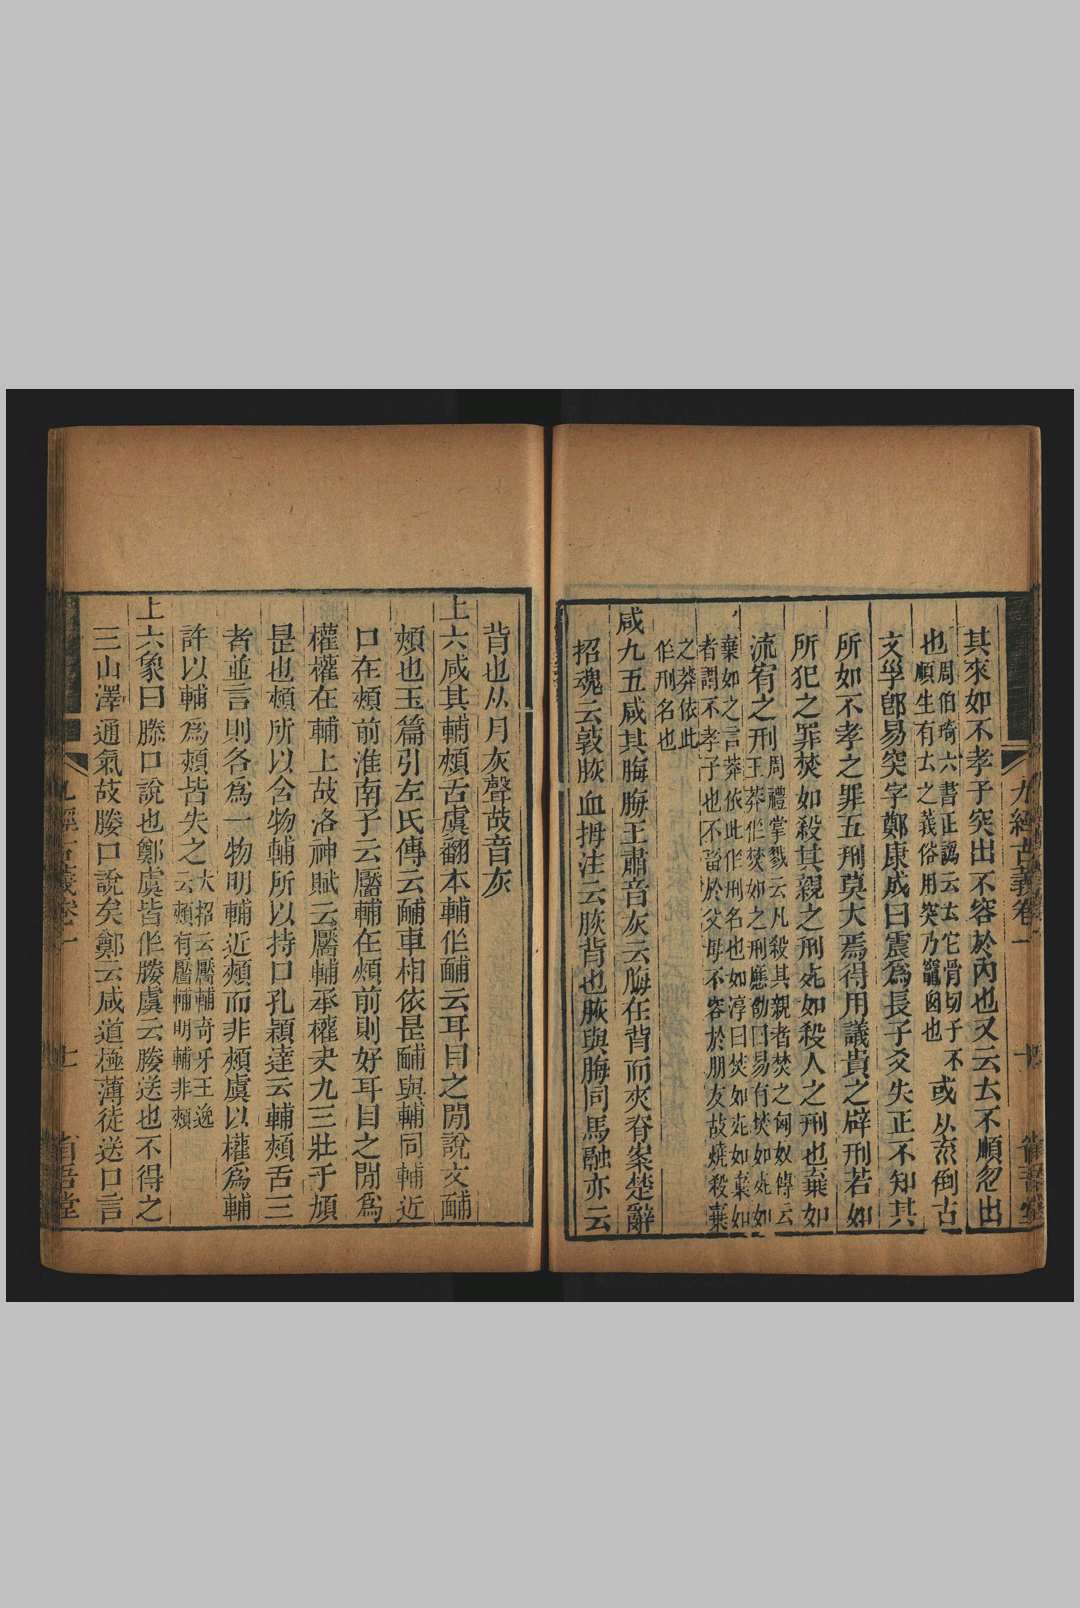 其來如不孝子突出不容於內也又云𠫓不順忽出
也周伯琦六書正譌云𠫓它骨切子不
順生有𠫓之義俗用突乃竈囪也
或从㐬倒古
文孚卽易突字鄭康成曰震爲長子爻失正不知其
所如不孝之罪五刑莫大焉得用議貴之辟刑若如
所犯之罪焚如殺其親之刑死如殺人之刑也棄如
流宥之刑周禮掌戮云凡殺其親者焚之匈奴傳云
王莽作焚如之刑應劭曰易有焚如死如
棄如之言莽依此作刑名也如淳曰焚如死如棄如
者謂不孝子也不畜於父母不容於朋友故燒殺棄
之莽依此
作刑名也
咸九五咸其脢脢王肅音灰云脢在背而夾脊案楚辭
招魂云敦脄血拇注云脄背也脄與脢同馬融亦云
九經古義卷一
省吾堂
背也从月灰聲故音灰
上六咸其輔頰舌虞翻本輔作䩉云耳目之閒說文䩉
頰也玉篇引左氏傳云䩉車相依是䩉與輔同輔近
口在頰前淮南子云靨輔在頰前則好耳目之閒爲
權權在輔上故洛神賦云靨輔承權夬九三壯于頄
是也頰所以含物輔所以持口孔穎達云輔頰舌三
者並言則各爲一物明輔近頰而非頰虞以權爲輔
許以輔爲頰皆失之大招云靨輔奇牙王逸
云頰有靨輔明輔非頰
上六象曰滕口說也鄭虞皆作媵虞云媵送也不得之
三山澤通氣故媵口說矣鄭云咸道極薄徒送口言
九經古義卷一
七
省吾堂